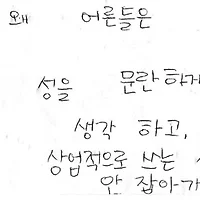 왜 어른들은
성을 문란하게
생각 하고,
상업적으로 쓰는
안 잡아가